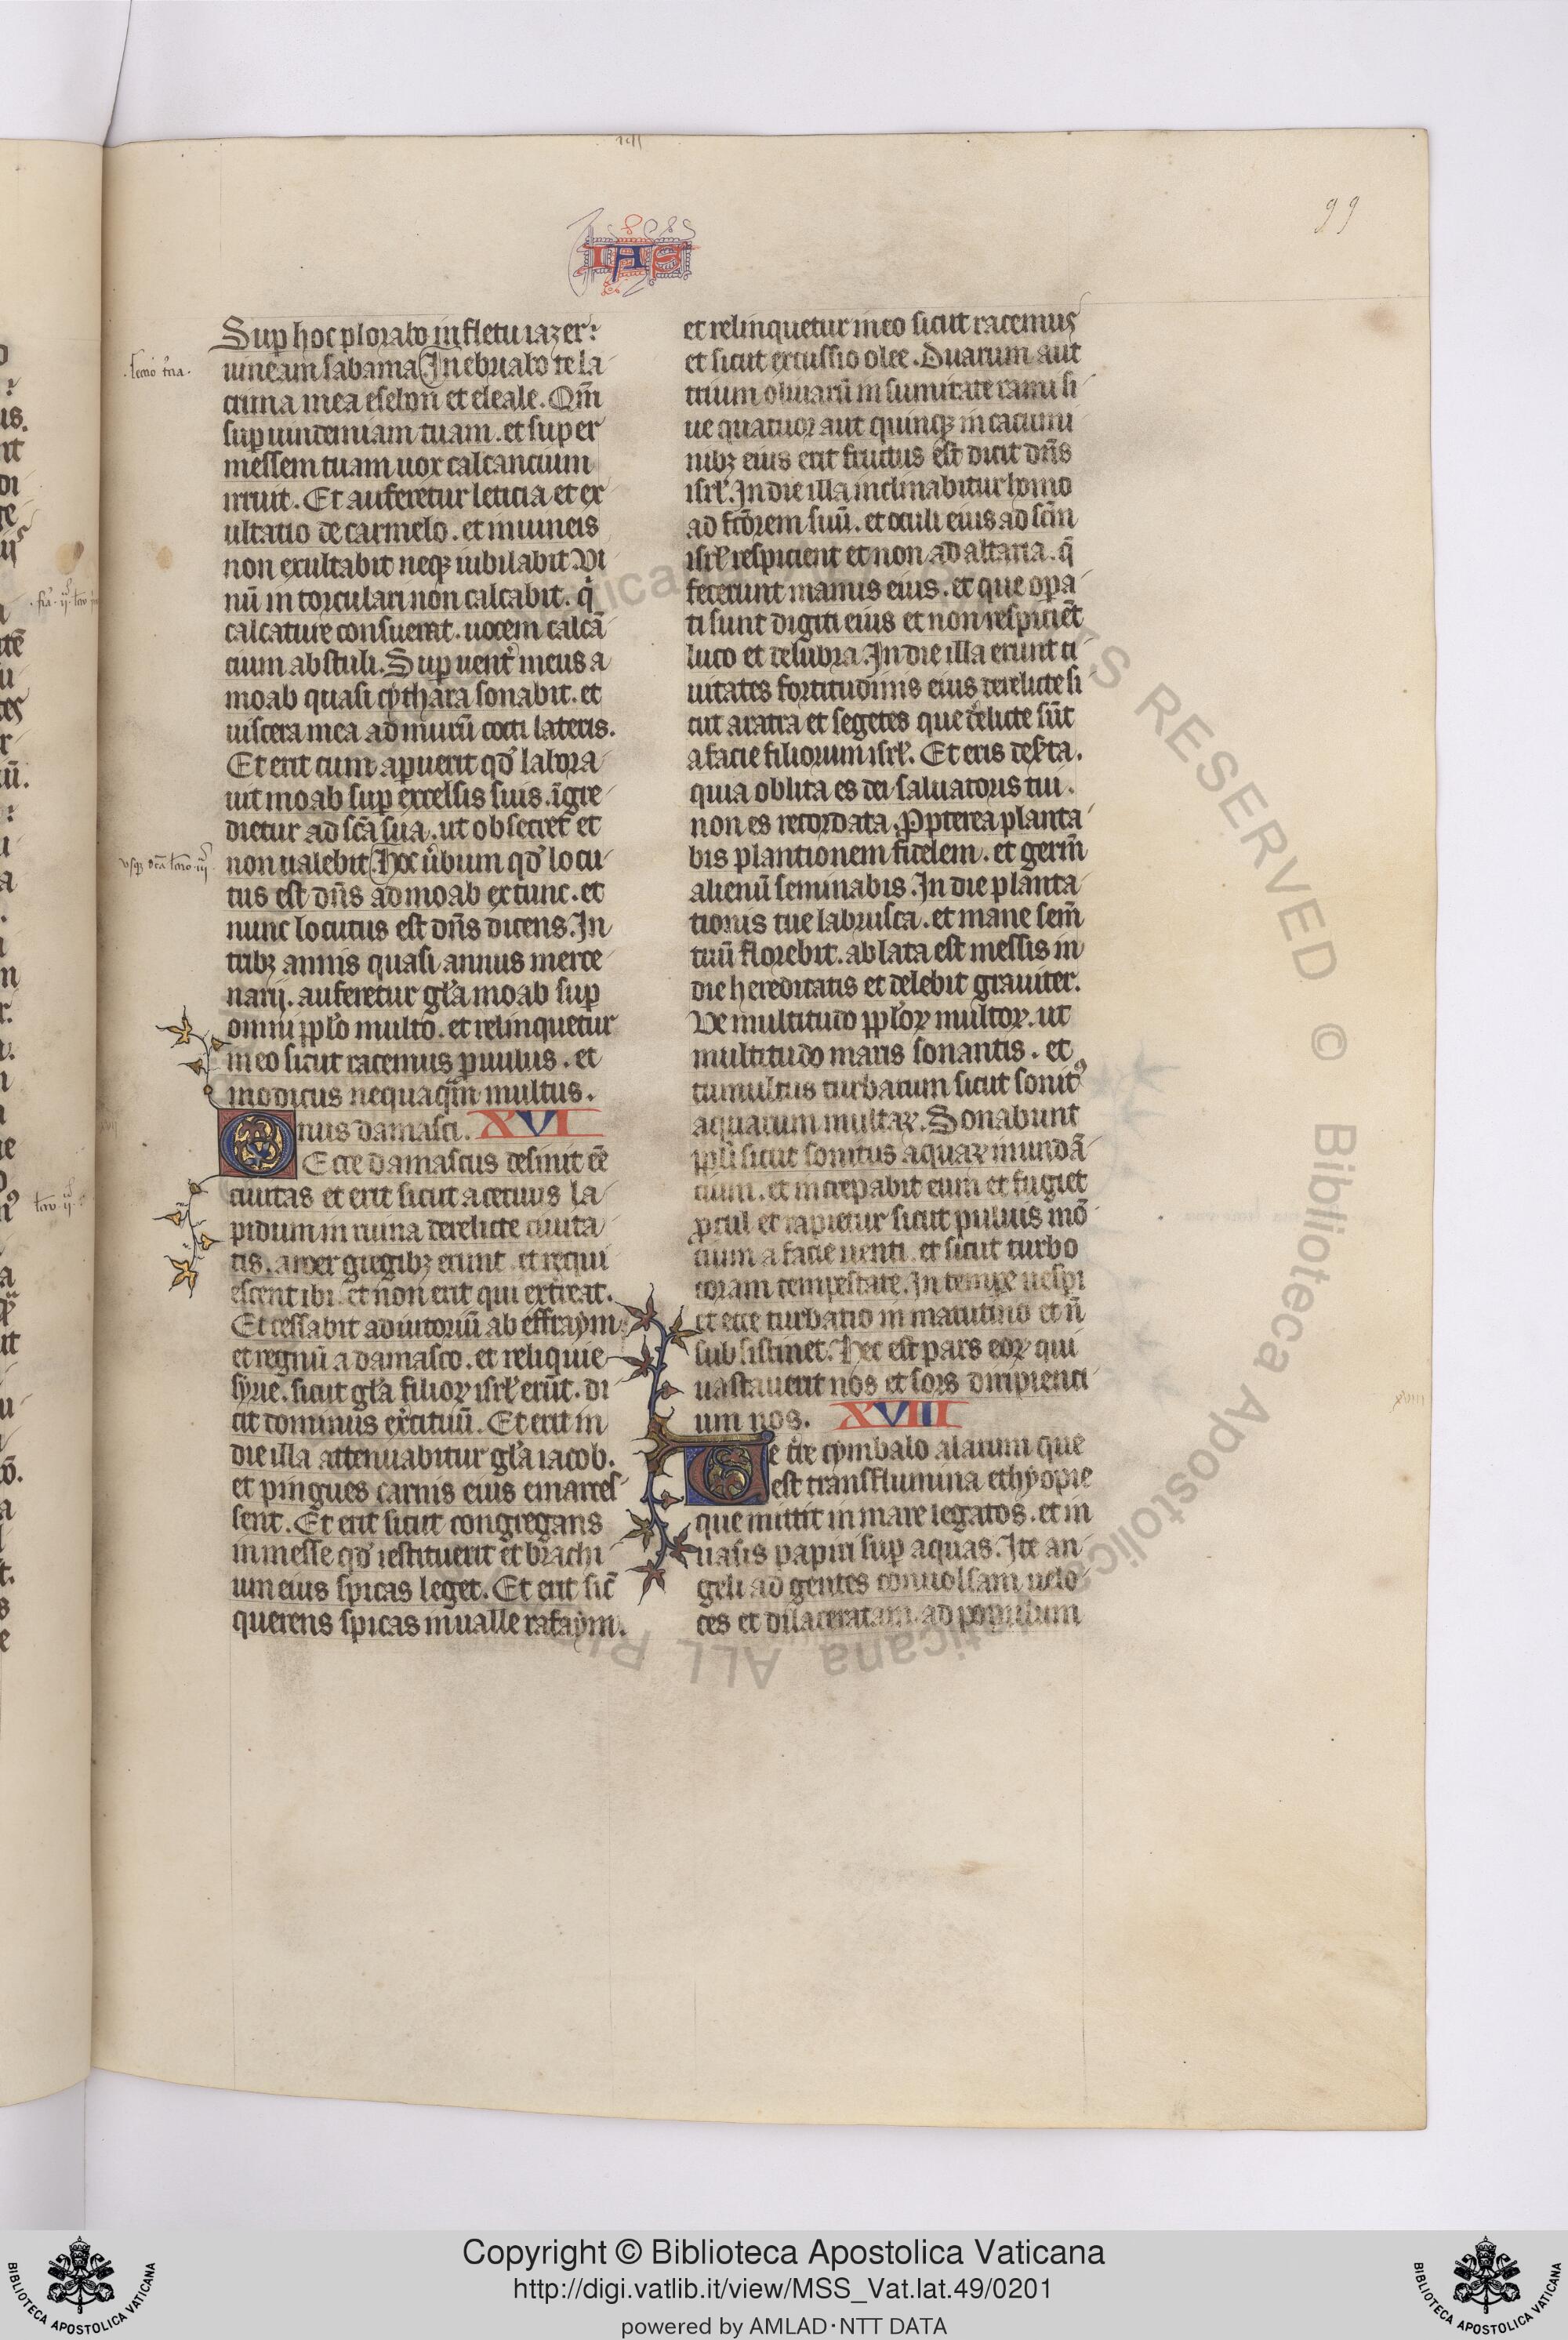 99
IAS
Sup̱ hoc plorabo in fletu iazer:
uineam sabama. Inebriabo te la
crima mea esebon et eleale. Qm̄
sup̱ uindemiam tuam. et super
messem tuam uox calcancium
irruit. Et auferetur leticia et ex
ultatio de carmelo. et in uineis
non exultabit neqꝫ iubilabit. Vi
nū in torculari non calcabit. q̇
calcature consuerat. uocem calcā
cium abstuli. Sup̱ uent᷒ meus a
moab quasi cythara sonabit. et
uiscera mea ad murū cocti lateris.
Et erit cum apuerit qd̕ labora
uit moab sup̱ excelsis suis. īgre
dietur ad sc̄a sua. ut obsecret et
non ualebit. Hoc u̇bum qd̕ locu
tus est dn̄s ad moab ex tunc. et
nunc locutus est dn̄s dicens. In
tribꝫ annis quasi annus merce
narij. auferetur gl̕a moab sup̱
omni ppl̕o multo. et relinquetur
in eo sicut racemus ꝑuulus. et
modicus nequaq̄m multus.
Onus damasci. XVI
Ecce damascus desinit eē
ciuitas et erit sicut aceruus la
pidum in ruina derelicte ciuita
tis. aroer gregibꝫ erunt. et requi
escent ibi. et non erit qui exterreat.
Et cessabit adiutoriū ab effraym
et regnū a damasco. et reliquie
syrie. sicut gl̕a filioꝝ isrl̕ erūt. di
cit dominus ex̕cituū. Et erit in
die illa attenuabitur gl̕a iacob.
et pingues carnis eius emarces
sent. Et erit sicut congregans
in messe qd̕ restituerit et brachi
um eius spicas leget. Et erit sic̄
querens spicas in ualle rafaym.
et relinquetur in eo sicut racemus
et sicut excussio olee. Duarum aut
trium oliuarū in sumitate rami si
ue quatuor aut quinqꝫ in cacumi
nibꝫ eius erit fructus est dicit dn̄s
isrl̕. In die illa inclinabitur homo
ad fc̄orem suū. et oculi eius ad sc̄m
isrl̕ respicient et non ad altaria. q̄
fecerunt manus eius. et que opa
ti sunt digiti eius et non respiciēt
luco et delubra. In die illa erunt ci
uitates fortitudinis eius derelicte si
cut aratra et segetes que d̕elicte sūt
a facie filiorum isrl̕. Et eris des̕ta.
quia oblita es dei saluatoris tui.
non es recordata. Ꝓpterea planta
bis plantionem fidelem. et germ̄
alienū seminabis. In die planta
tionis tue labrusca. et mane sem̄
tuū florebit. ablata est messis in
die hereditatis et delebit grauiter.
Ve multitudo ppl̕oꝝ multoꝝ. ut
multitudo maris sonantis. et
tumultus turbarum sicut sonitꝰ
aquarum multaꝝ. Sonabunt
ppl̕i sicut sonitus aquaꝝ inundā
cium. et increpabit eum et fugiet
ꝓcul et rapietur sicut puluis mō
cium a facie uenti. et sicut turbo
coram tempestate. In tempe uesp̱i
et ecce turbatio in matutino et n̄
subsistinet. Hec est pars eoꝝ qui
uastauerit nos et sors diripienci
um nos. XVIII
Ve t̕re cymbalo alarum que
est trans flumina ethyopie
que mittit in mare legatos. et in
uasis papiri sup̱ aquas. Ite an
geli ad gentes conuolsam uelo
ces et dilaceratam. ad populum
Copyright © Biblioteca Apostolica Vaticana
http://digi.vatlib.it/view/MSS_Vat.lat.49/0201
powered by AMLAD·NTT DATA
BIBLIOTECA APOSTOLICA VATICANA
BIBLIOTECA APOSTOLICA VATICANA